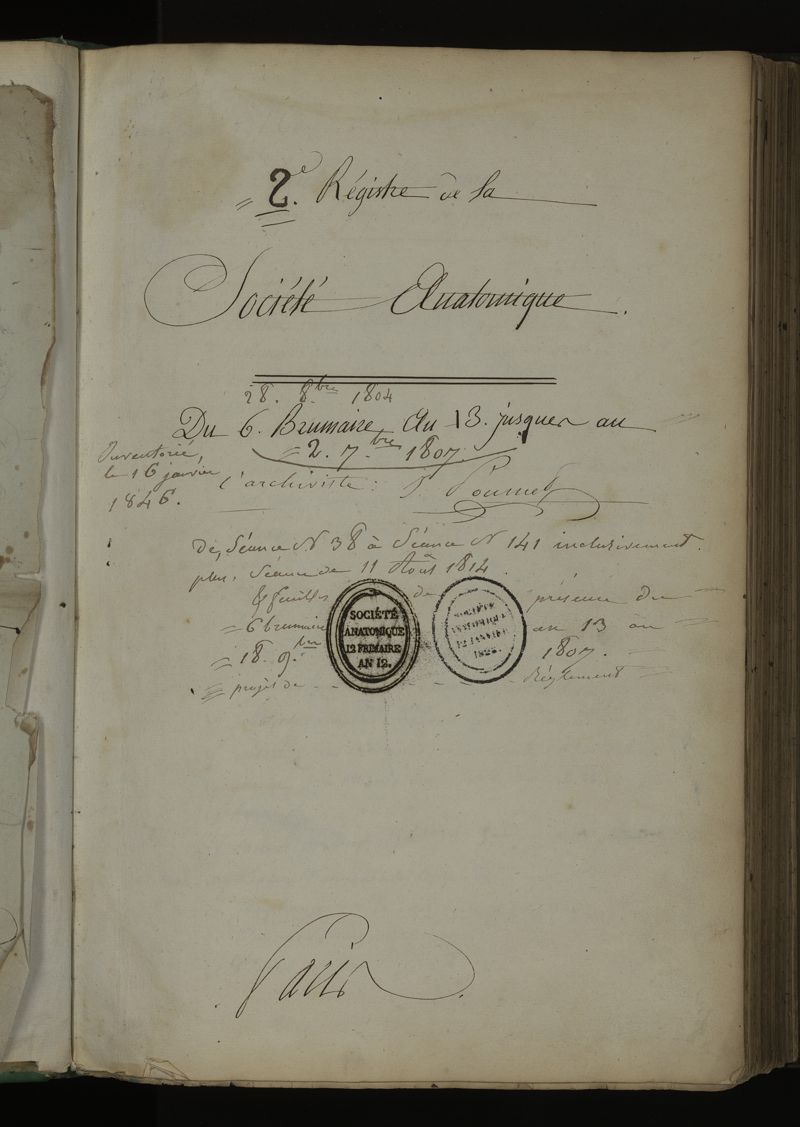 = 2e. Régistre de la
Société Anatomique.
28. 8bre 1804
Du 6. Brumaire An 13. jusques au
= 2. 7.bre 1807.
Inventorié,
le 16 janvier
1846.
l'archiviste :
de, Séance N 38 à Séance N 141 inclusivement.
plus, Séance de 11 Août 1814.
& feuilles de présence du
= 6 brumaire an 13 au
= 18. 9.bre 1807. =
= projet de Réglement =
SOCIÉTÉ
ANATOMIQUE
12 FRIMAIRE
AN 12.
SOCIÉTÉ
ANATOMIQUE
12 JANVIER
Paris.